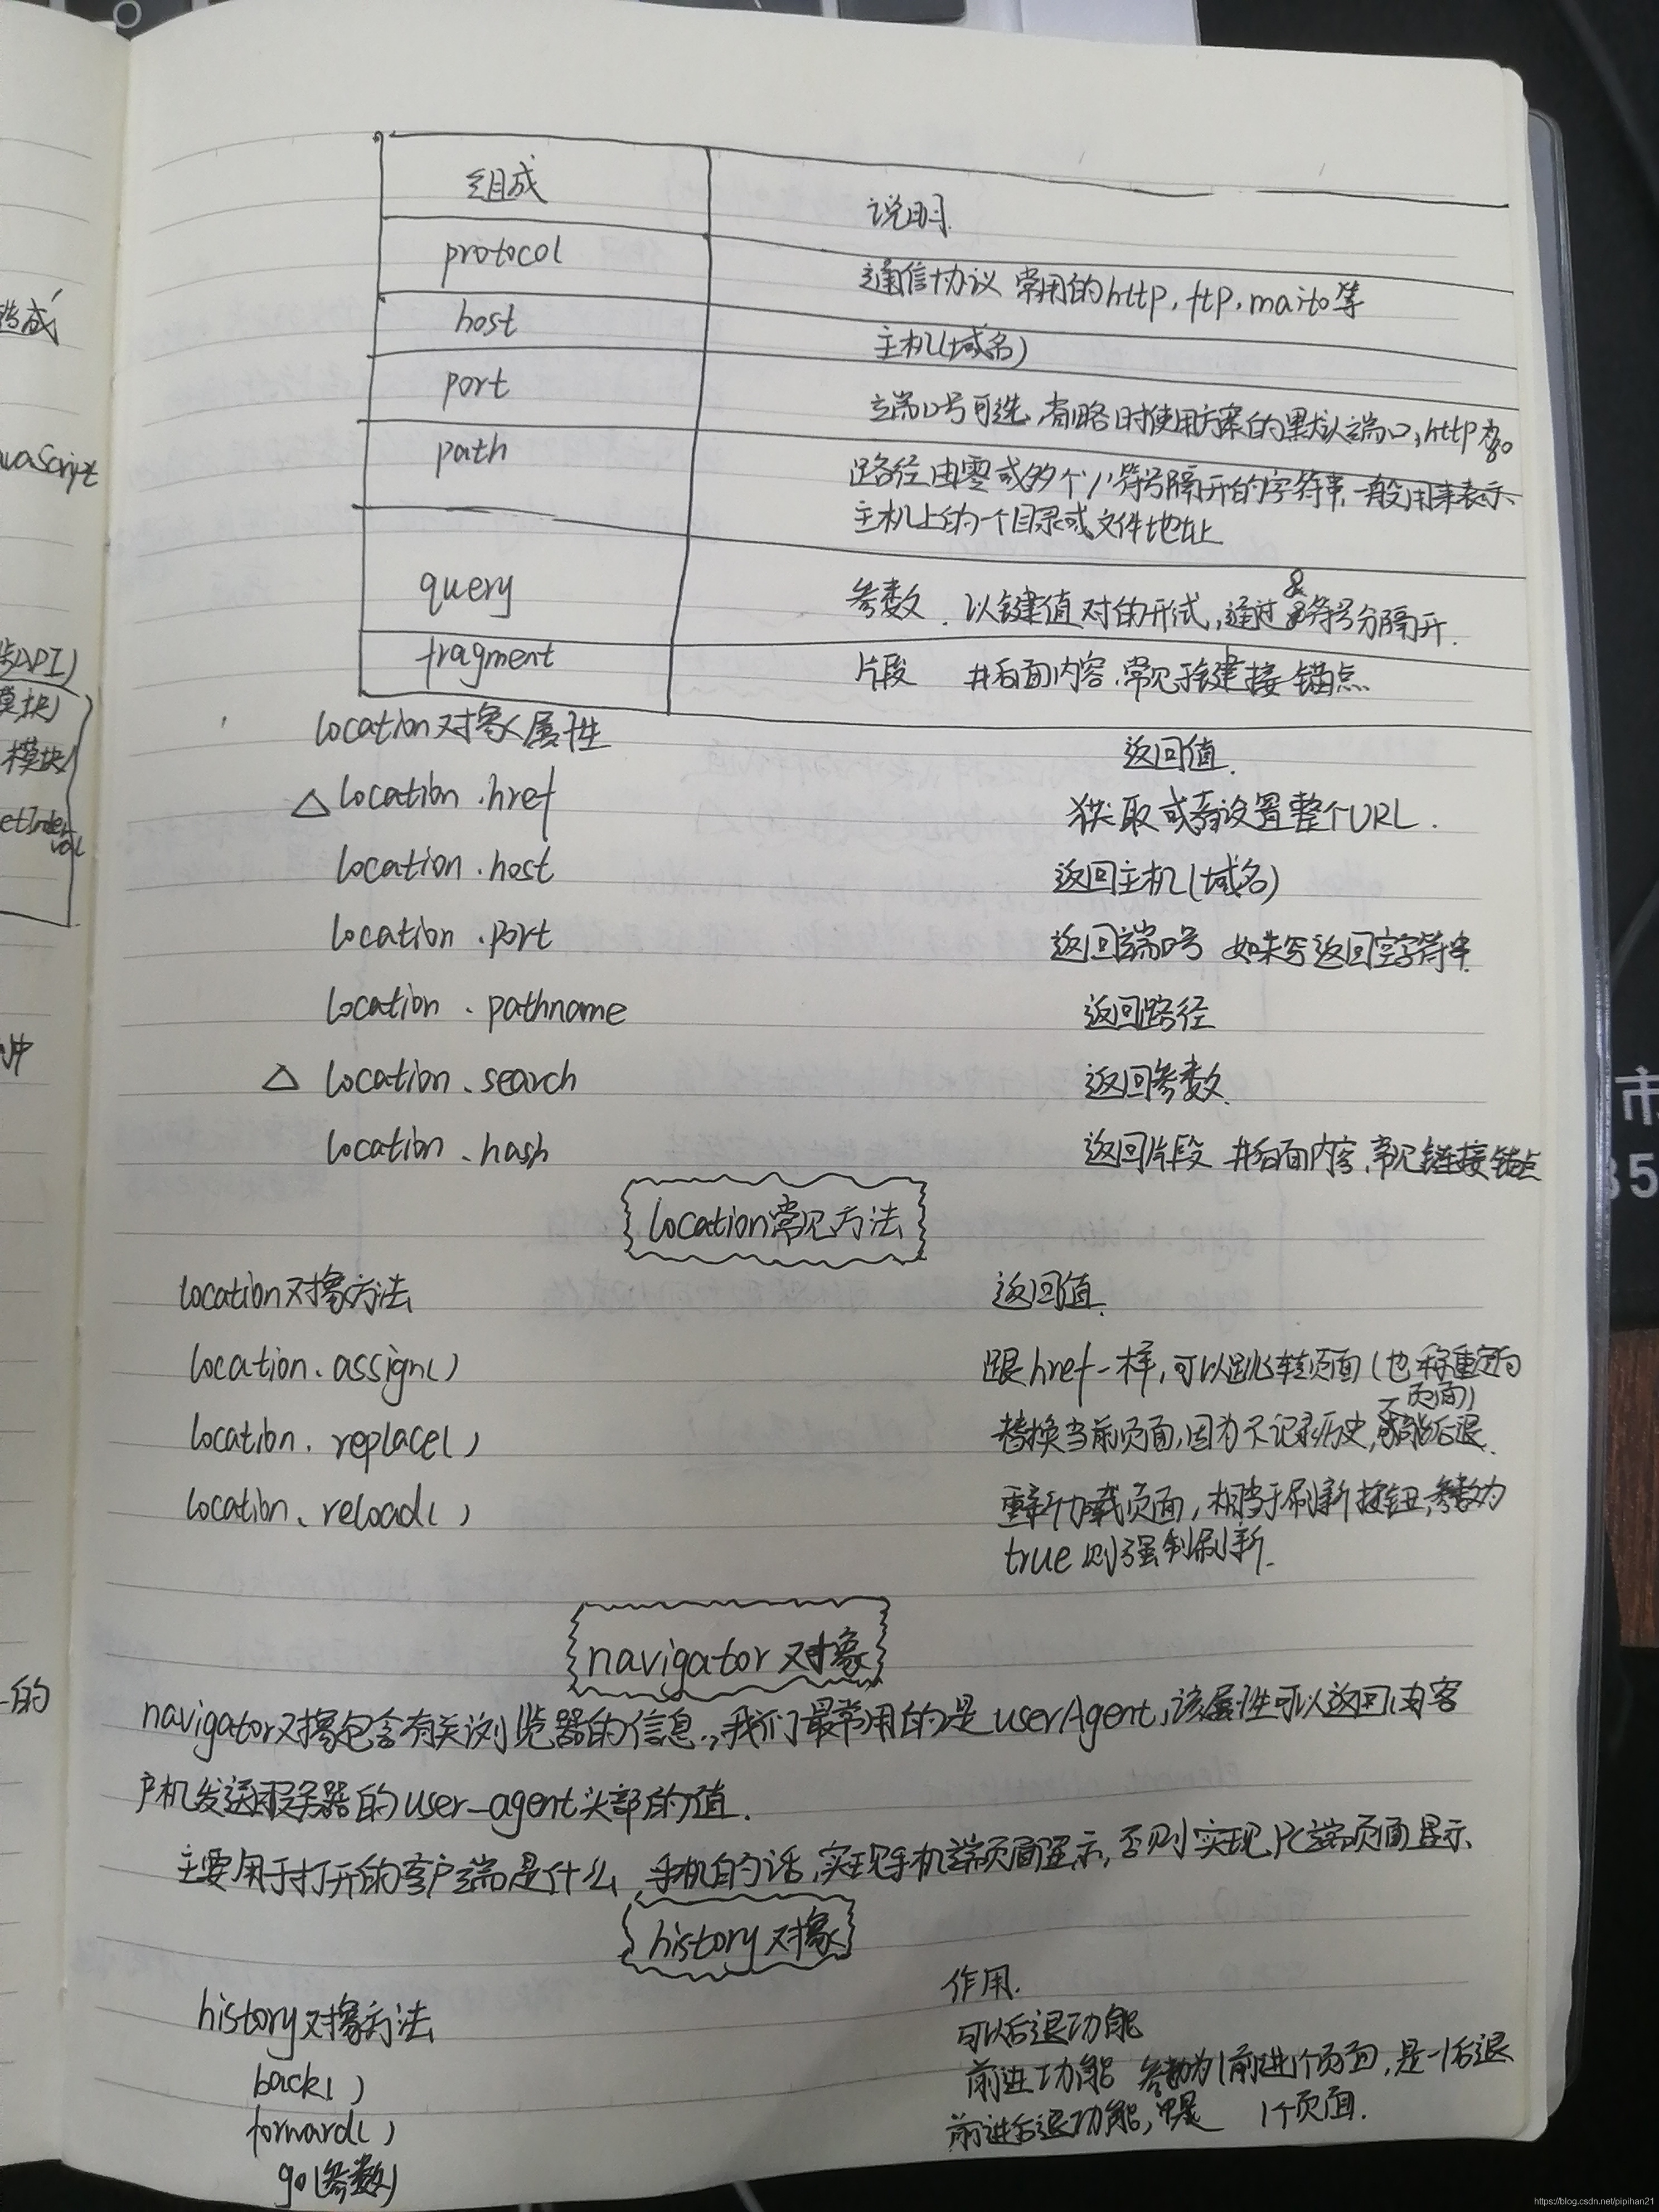 组成 说明
protocol 通信协议 常用的http,ftp,maito等
host 主机(域名)
port 端口号可选,省略时使用方案的默认端口,http为80
path 路径由零或多个'/'符号隔开的字符串,一般用来表示
主机上的一个目录或文件地址
query 参数.以键值对的形式,通过&符号分隔开.
fragment 片段 #后面内容,常见于链接 锚点
location对象属性 返回值.
△ location.href 获取或者设置整个URL.
location.host 返回主机(域名)
location.port 返回端口号 如未写返回空字符串
location.pathname 返回路径
△ location.search 返回参数.
location.hash 返回片段 #后面内容,常见链接锚点
location常见方法
location对象方法 返回值.
location.assign() 跟href一样,可以跳转页面(也称重定向
页面)
location.replace() 替换当前页面,因为不记录历史,不能后退.
location.reload() 重新加载页面,相当于刷新按钮,参数为
true则强制刷新.
navigator对象
navigator对象包含有关浏览器的信息.,我们最常用的是userAgent,该属性可以返回由客
户机发送服务器的user-agent头部的值.
主要用于打开的客户端是什么,手机的话,实现手机端页面显示,否则实现PC端页面显示
history对象
history对象方法 作用.
back() 可以后退功能
forward() 前进功能 参数为1前进1个页面,是-1后退
go(参数) 前进后退功能, 1个页面.
造成
JavaScript
API)
模块)
模块)
的
市
https://blog.csdn.net/pipihan21